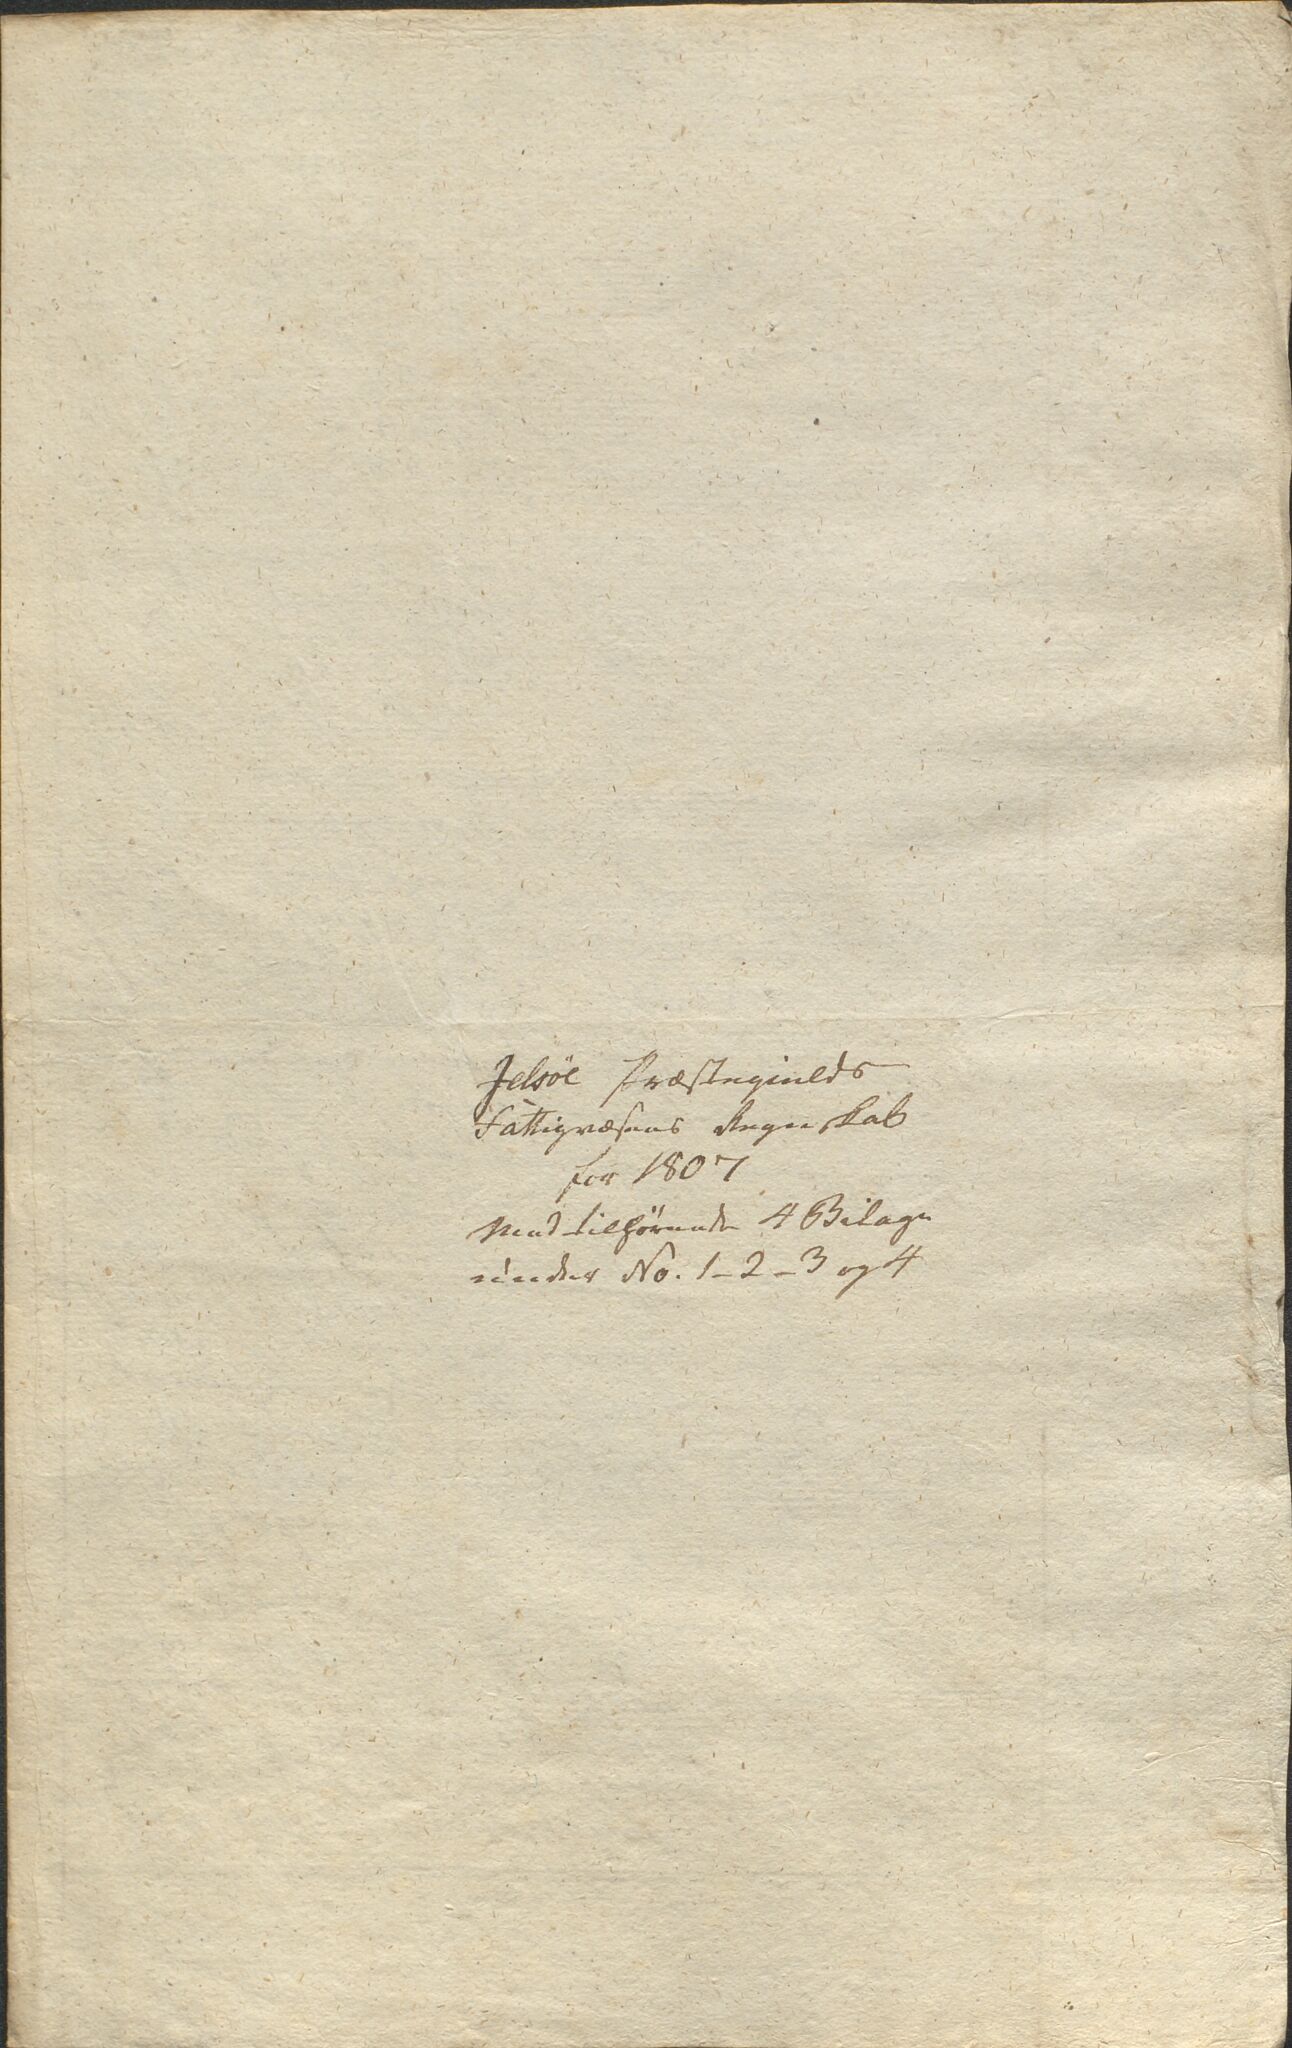 Jelsöe Præstegields
Fattigvæsens Regnskab
for 1807
Med tilhörende 4 Bilage
under No. 1-2-3 og 4